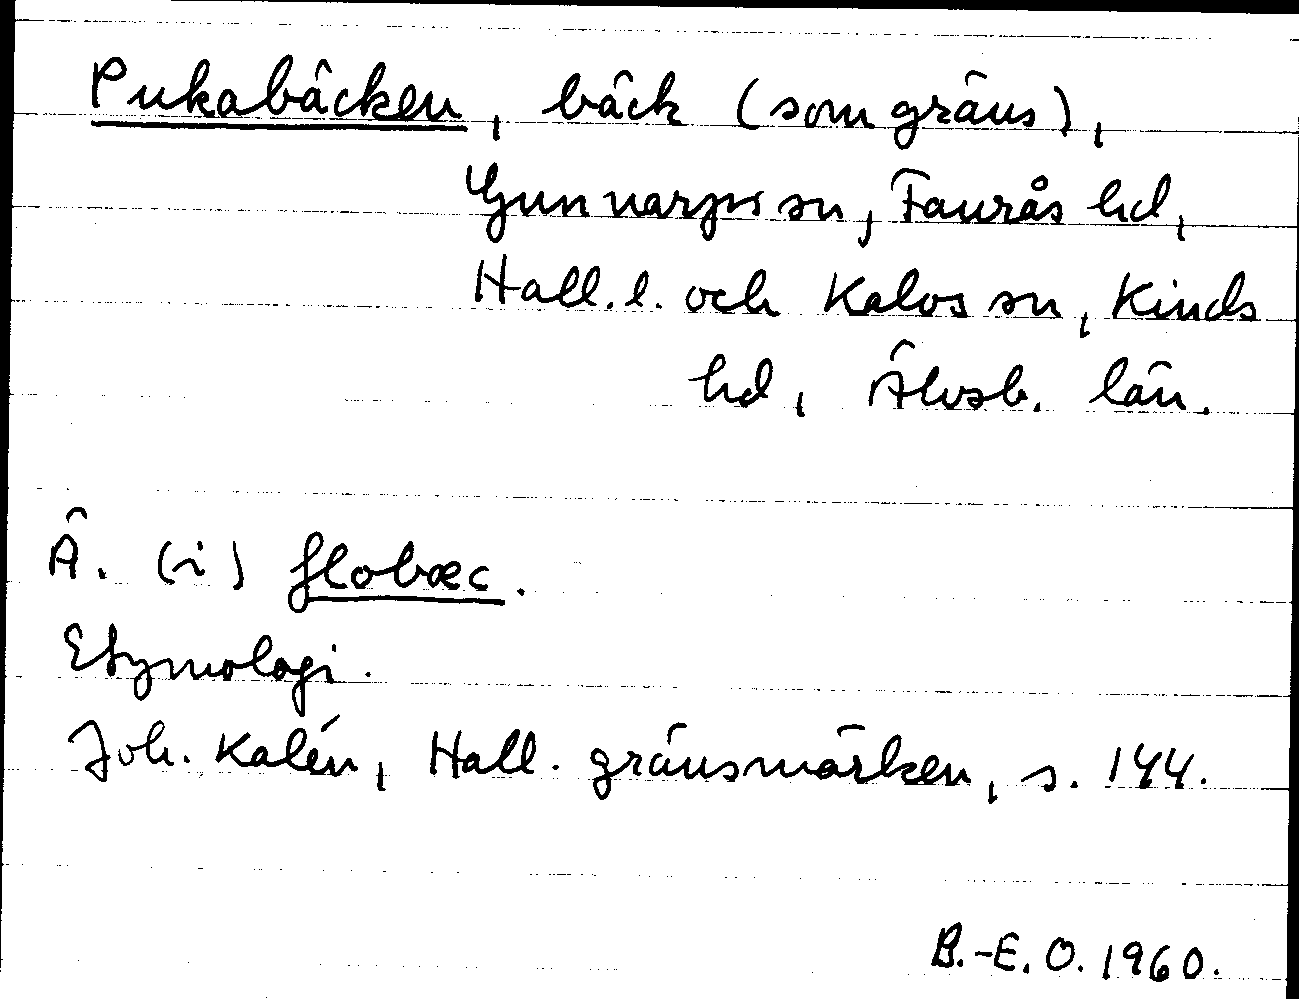 Pukabäcken, bäck (som gräns),
Gunnarps sn, Faurås hd,
Hall. l. och Kalvs sn, Kinds
hd, Älvsb. län.
Ä. (i) flobæc.
Etymologi.
Joh. Kalén, Hall. gränsmärken, s. 144.
B.-E. O. 1960.